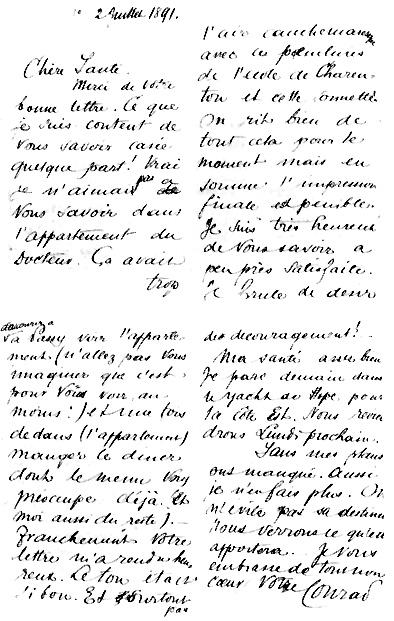 2 Juillet 1891.
Chère Tante.
Merci de votre
bonne lettre. Ce que
je suis content de
vous savoir casée
quelque part! Vrai
je n'aimais pas
vous savoir dans
l'appartement du
Docteur. Ça avait
trop
l'air cauchemar
avec ces peintures
de l'école de Charen-
ton et cette
On rit bien de
tout cela pour le
moment mais en
somme l'impression
finale est penible.
Je suis très heureux
de vous savoir à
peu près satisfaite.
Je brule du desir
d'accourir
à Passy voir l'apparte-
ment. (n'allez pas vous
imaginer que c'est
pour vous voir au
moins!) et une fois
dedans (l'appartement)
manger le diner
dont le menu Vous
préoccupe déjà. Et
moi aussi du reste). —
Franchement votre
lettre m'a rendu heu-
reux. Le ton était
si bon. Et surtout
pas
de decouragement! —
Ma santé assez bien
Je pars demain dans
le yacht de Hope pour
la côte Est. Nous revien
drons Lundi prochain.
Tous mes plans
ont manqué. Aussi
je n'en fais plus. On
n'evite pas sa destinée
Nous verrons ce qu'elle
apportera. Je Vous
embrasse de tout mon
cœur Votre Conrad